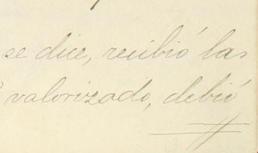 se dice, recibió las
valorizado, debió